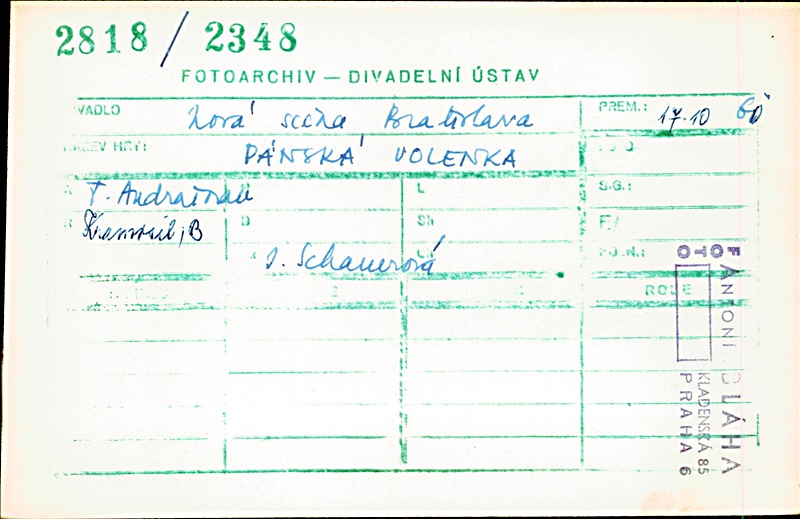 2818 / 2348
FOTOARCHIV — DIVADELNÍ ÚSTAV
VADLO Nová scéna Bratislava PREM.: 17.10 60
HRY: PÁNSKÁ VOLENKA
T. L SIG.:
Kramosil, B D Sh F/
J. Schauerová
ROLE
FOTO
ANTONÍ BLÁHA
KLADENSKÁ 85
PRAHA 6